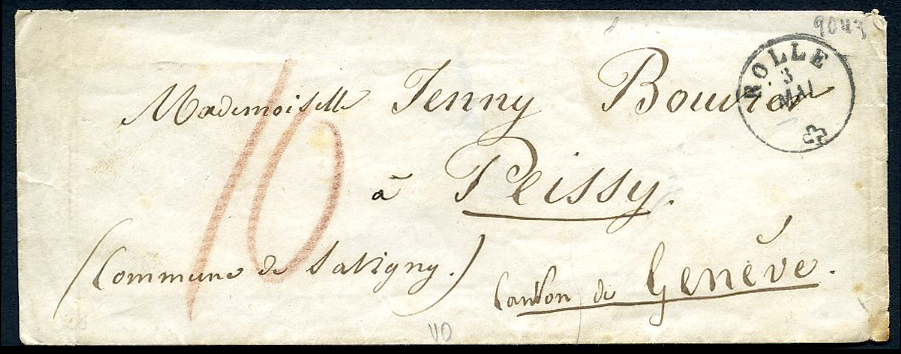 9043
ROLLE
3
MAI
Mademoiselle Jenny Bouvier
10
à Peissy.
(Commune de Satigny.)
Canton de Genève.